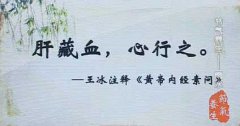 肝藏血，心行之。
—王冰注释《黄帝内经素问》
养生